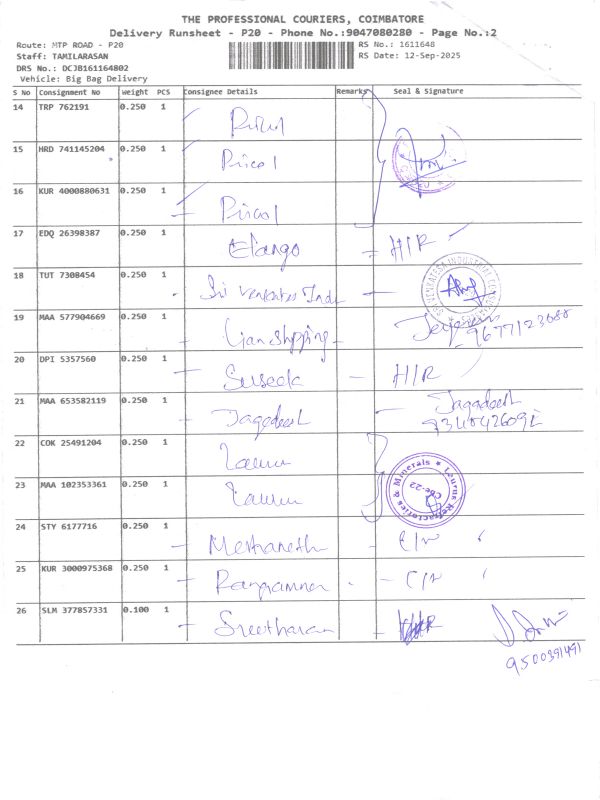 THE PROFESSIONAL COURIERS, COIMBATORE
Delivery Runsheet - P20 - Phone No.:9047080280 - Page No.:2
Route: MTP ROAD - P20 RS No.: 1611648
Staff: TAMILARASAN RS Date: 12-Sep-2025
DRS No.: DCJB161164802
Vehicle: Big Bag Delivery
S No Consignment No Weight PCS Consignee Details Remarks Seal & Signature
14 TRP 762191 0.250 1 Pricol
15 HRD 741145204 0.250 1 Pricol
16 KUR 4000880631 0.250 1 Pricol
17 EDQ 26398387 0.250 1 Elango - H/R
18 TUT 7308454 0.250 1 Sri Venkates Inds
SRI VENKATESA INDUSTRIAL
19 MAA 577904669 0.250 1 Lian Shipping
9677123688
20 DPI 5357560 0.250 1 - H/R
21 MAA 653582119 0.250 1 Jagadeesh - Jagadeesh
22 COK 25491204 0.250 1
23 MAA 102353361 0.250 1
Laurus Refractories & Minerals ★ Cbe-22
24 STY 6177716 0.250 1
25 KUR 3000975368 0.250 1
26 SLM 377857331 0.100 1 Sreetharan
9500391491